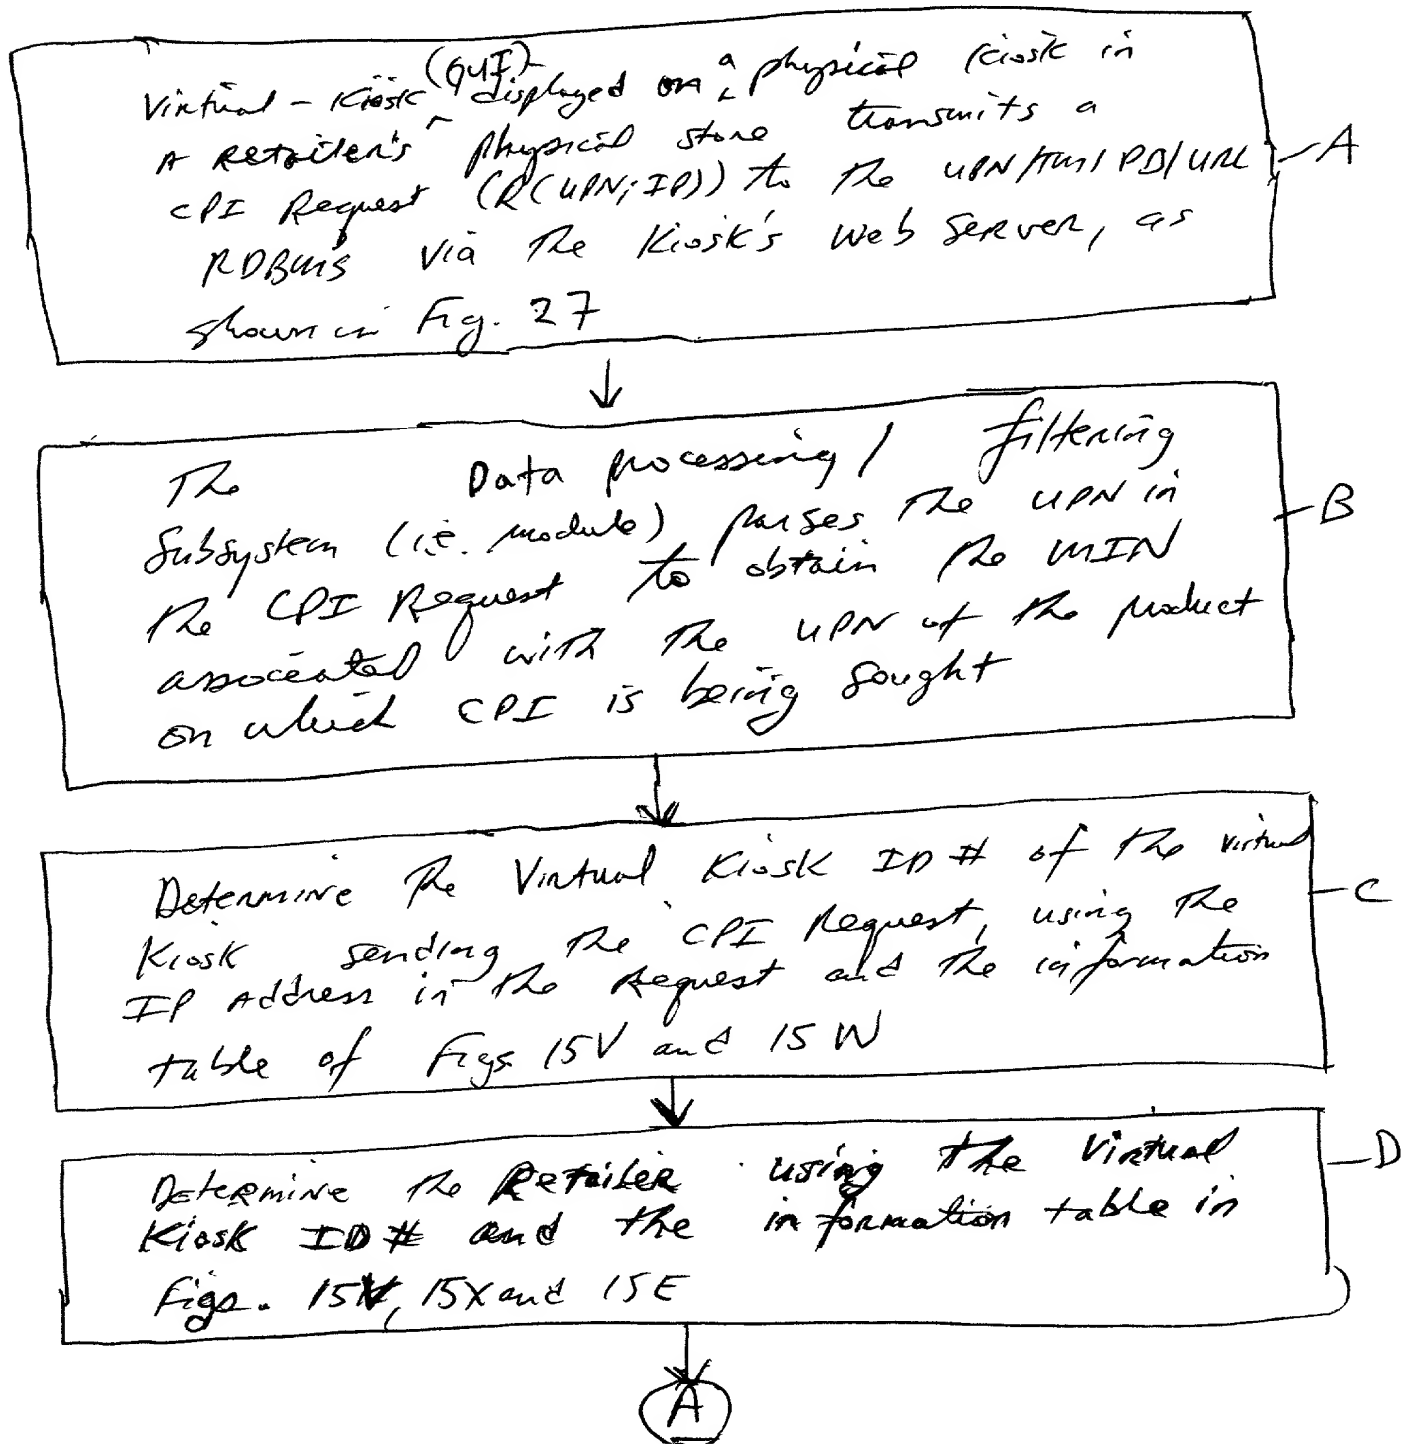 (GUI)
Virtual-Kiosk ^ displayed on a physical Kiosk in
A Retailer's physical store transmits a
CPI Request (R(UPN;IP)) to the UPN/TM/PD/URL
RDBMS via the Kiosk's Web Server, as
shown in Fig. 27
A
The Data processing/filtering
Subsystem (i.e. module) parses the UPN in
the CPI Request to obtain the MIN
associated with the UPN of the product
on which CPI is being sought
B
Determine the Virtual Kiosk ID # of the virtual
Kiosk sending the CPI Request, using the
IP Address in the Request and the information
table of Figs 15V and 15W
C
Determine the Retailer using the Virtual
Kiosk ID # and the information table in
Figs. 15V, 15X and 15E
D
A